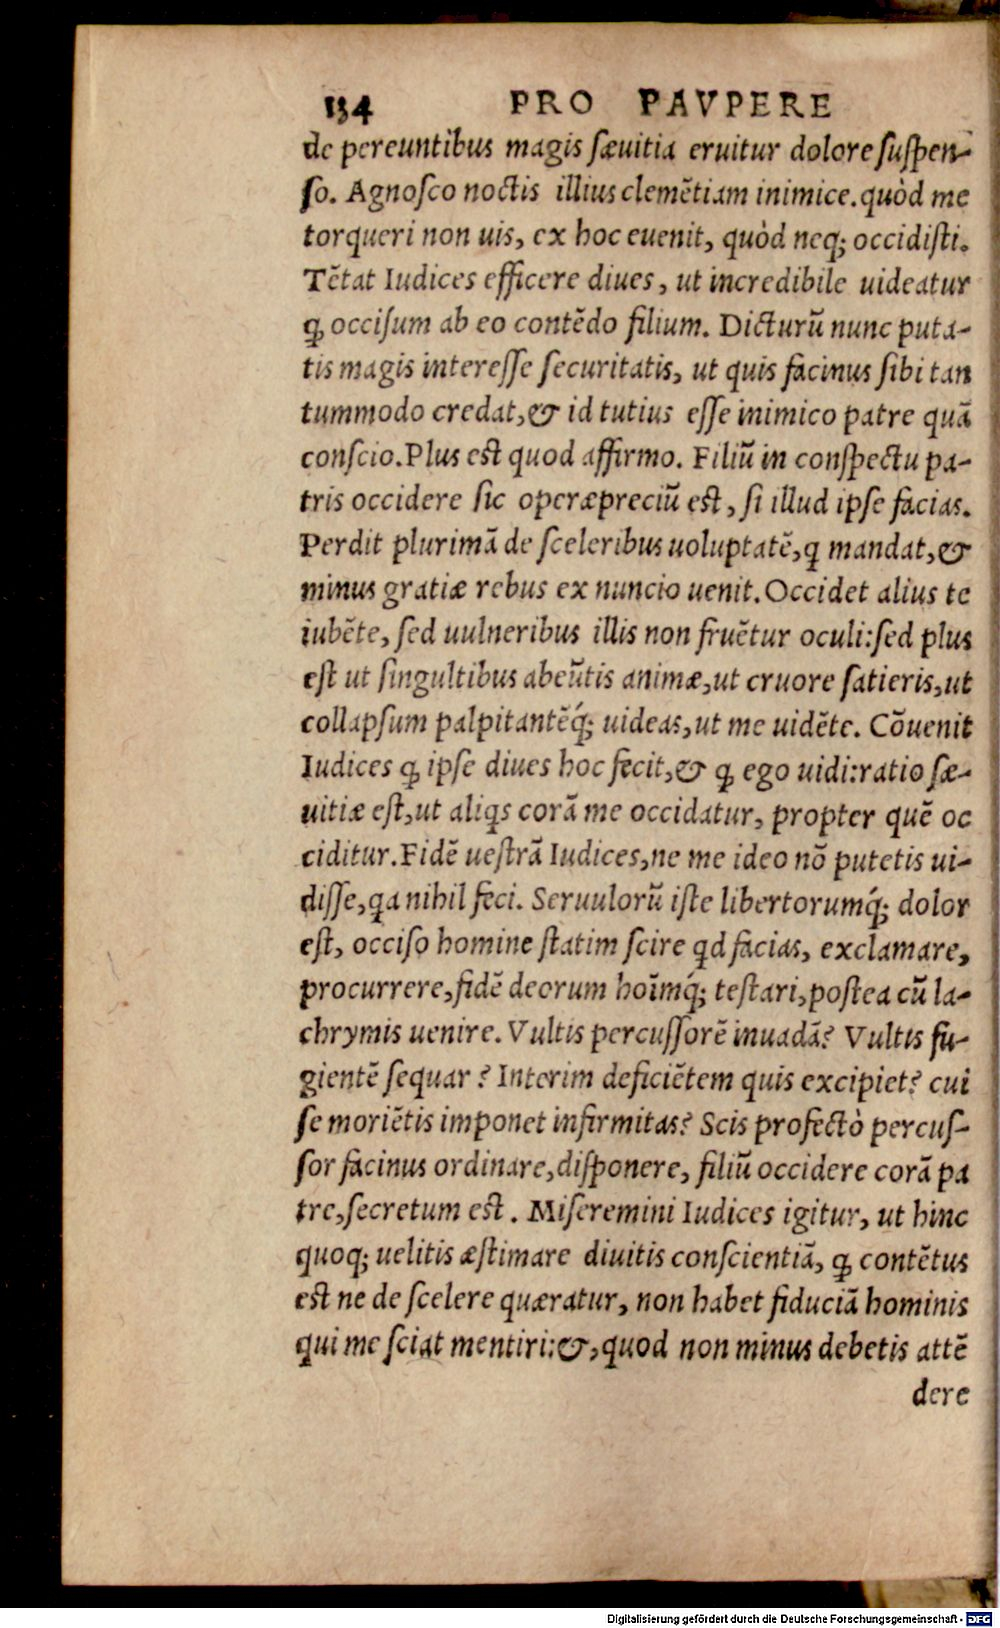 134 PRO PAVPERE
de pereuntibus magis sæuitia eruitur dolore suspen-
so. Agnosco noctis illius clemētiam inimice. quòd me
torqueri non uis, ex hoc euenit, quòd neq; occidisti.
Tētat Iudices efficere diues, ut incredibile uideatur
ꝙ occisum ab eo contēdo filium. Dicturū nunc puta-
tis magis interesse securitatis, ut quis facinus sibi tan
tummodo credat, & id tutius esse inimico patre quā
conscio. Plus est quod affirmo. Filiū in conspectu pa-
tris occidere sic operæpreciū est, si illud ipse facias.
Perdit plurimā de sceleribus uoluptatē, q mandat, &
minus gratiæ rebus ex nuncio uenit. Occidet alius te
iubēte, sed uulneribus illis non fruētur oculi: sed plus
est ut singultibus abeūtis animæ, ut cruore satieris, ut
collapsum palpitantēq́; uideas, ut me uidēte. Cōuenit
Iudices ꝙ ipse diues hoc fecit, & ꝙ ego uidi: ratio sæ-
uitiæ est, ut aliqs corā me occidatur, propter quē oc
ciditur. Fidē uestrā Iudices, ne me ideo nō putetis ui-
disse, qa nihil feci. Seruulorū iste libertorumq́; dolor
est, occiso homine statim scire qd facias, exclamare,
procurrere, fidē deorum hoīmq́; testari, postea cū la-
chrymis uenire. Vultis percussorē inuadā? Vultis fu-
gientē sequar? Interim deficiētem quis excipiet? cui
se moriētis imponet infirmitas? Scis profectò percus-
sor facinus ordinare, disponere, filiū occidere corā pa
tre, secretum est. Miseremini Iudices igitur, ut hinc
quoq; uelitis æstimare diuitis conscientiā, ꝙ contētus
est ne de scelere quæratur, non habet fiduciā hominis
qui me sciat mentiri: &, quod non minus debetis attē
dere
Digitalisierung gefördert durch die Deutsche Forschungsgemeinschaft - DFG